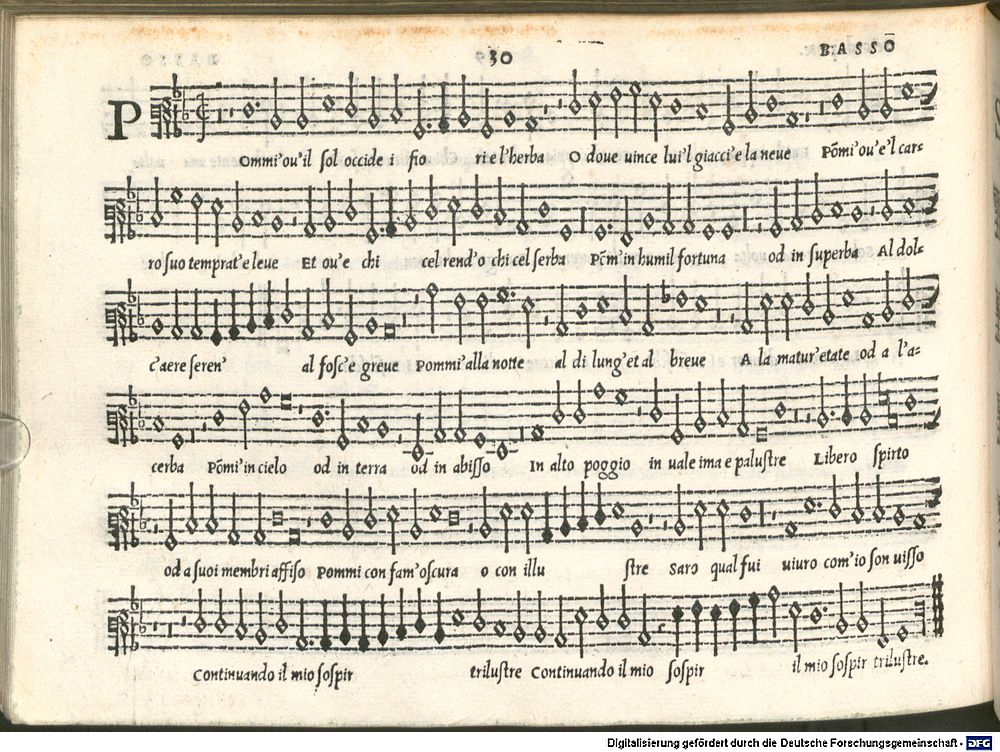 30
BASSO
POmmi'ou'il sol occide i fio ri e l'herba O doue uince lui'l giacci'e la neue Põmi ou'e'l car-
ro suo temprat'e leue Et ou'e chi cel rend'o chi cel serba Põm'in humil fortuna od in superba Al dol-
c'aere seren' al fosc'e greue Pommi'alla notte al di lung'et al breue A la matur'etate od a l'a-
cerba Põmi'in cielo od in terra od in abisso In alto poggio in uale ima e palustre Libero spirto
od a suoi membri affiso Pommi con fam'oscura o con illu stre saro qual fui uiuro com'io son uisso
Continuando il mio sospir trilustre Continuando il mio sospir il mio sospir trilustre.
Digitalisierung gefördert durch die Deutsche Forschungsgemeinschaft - DFG